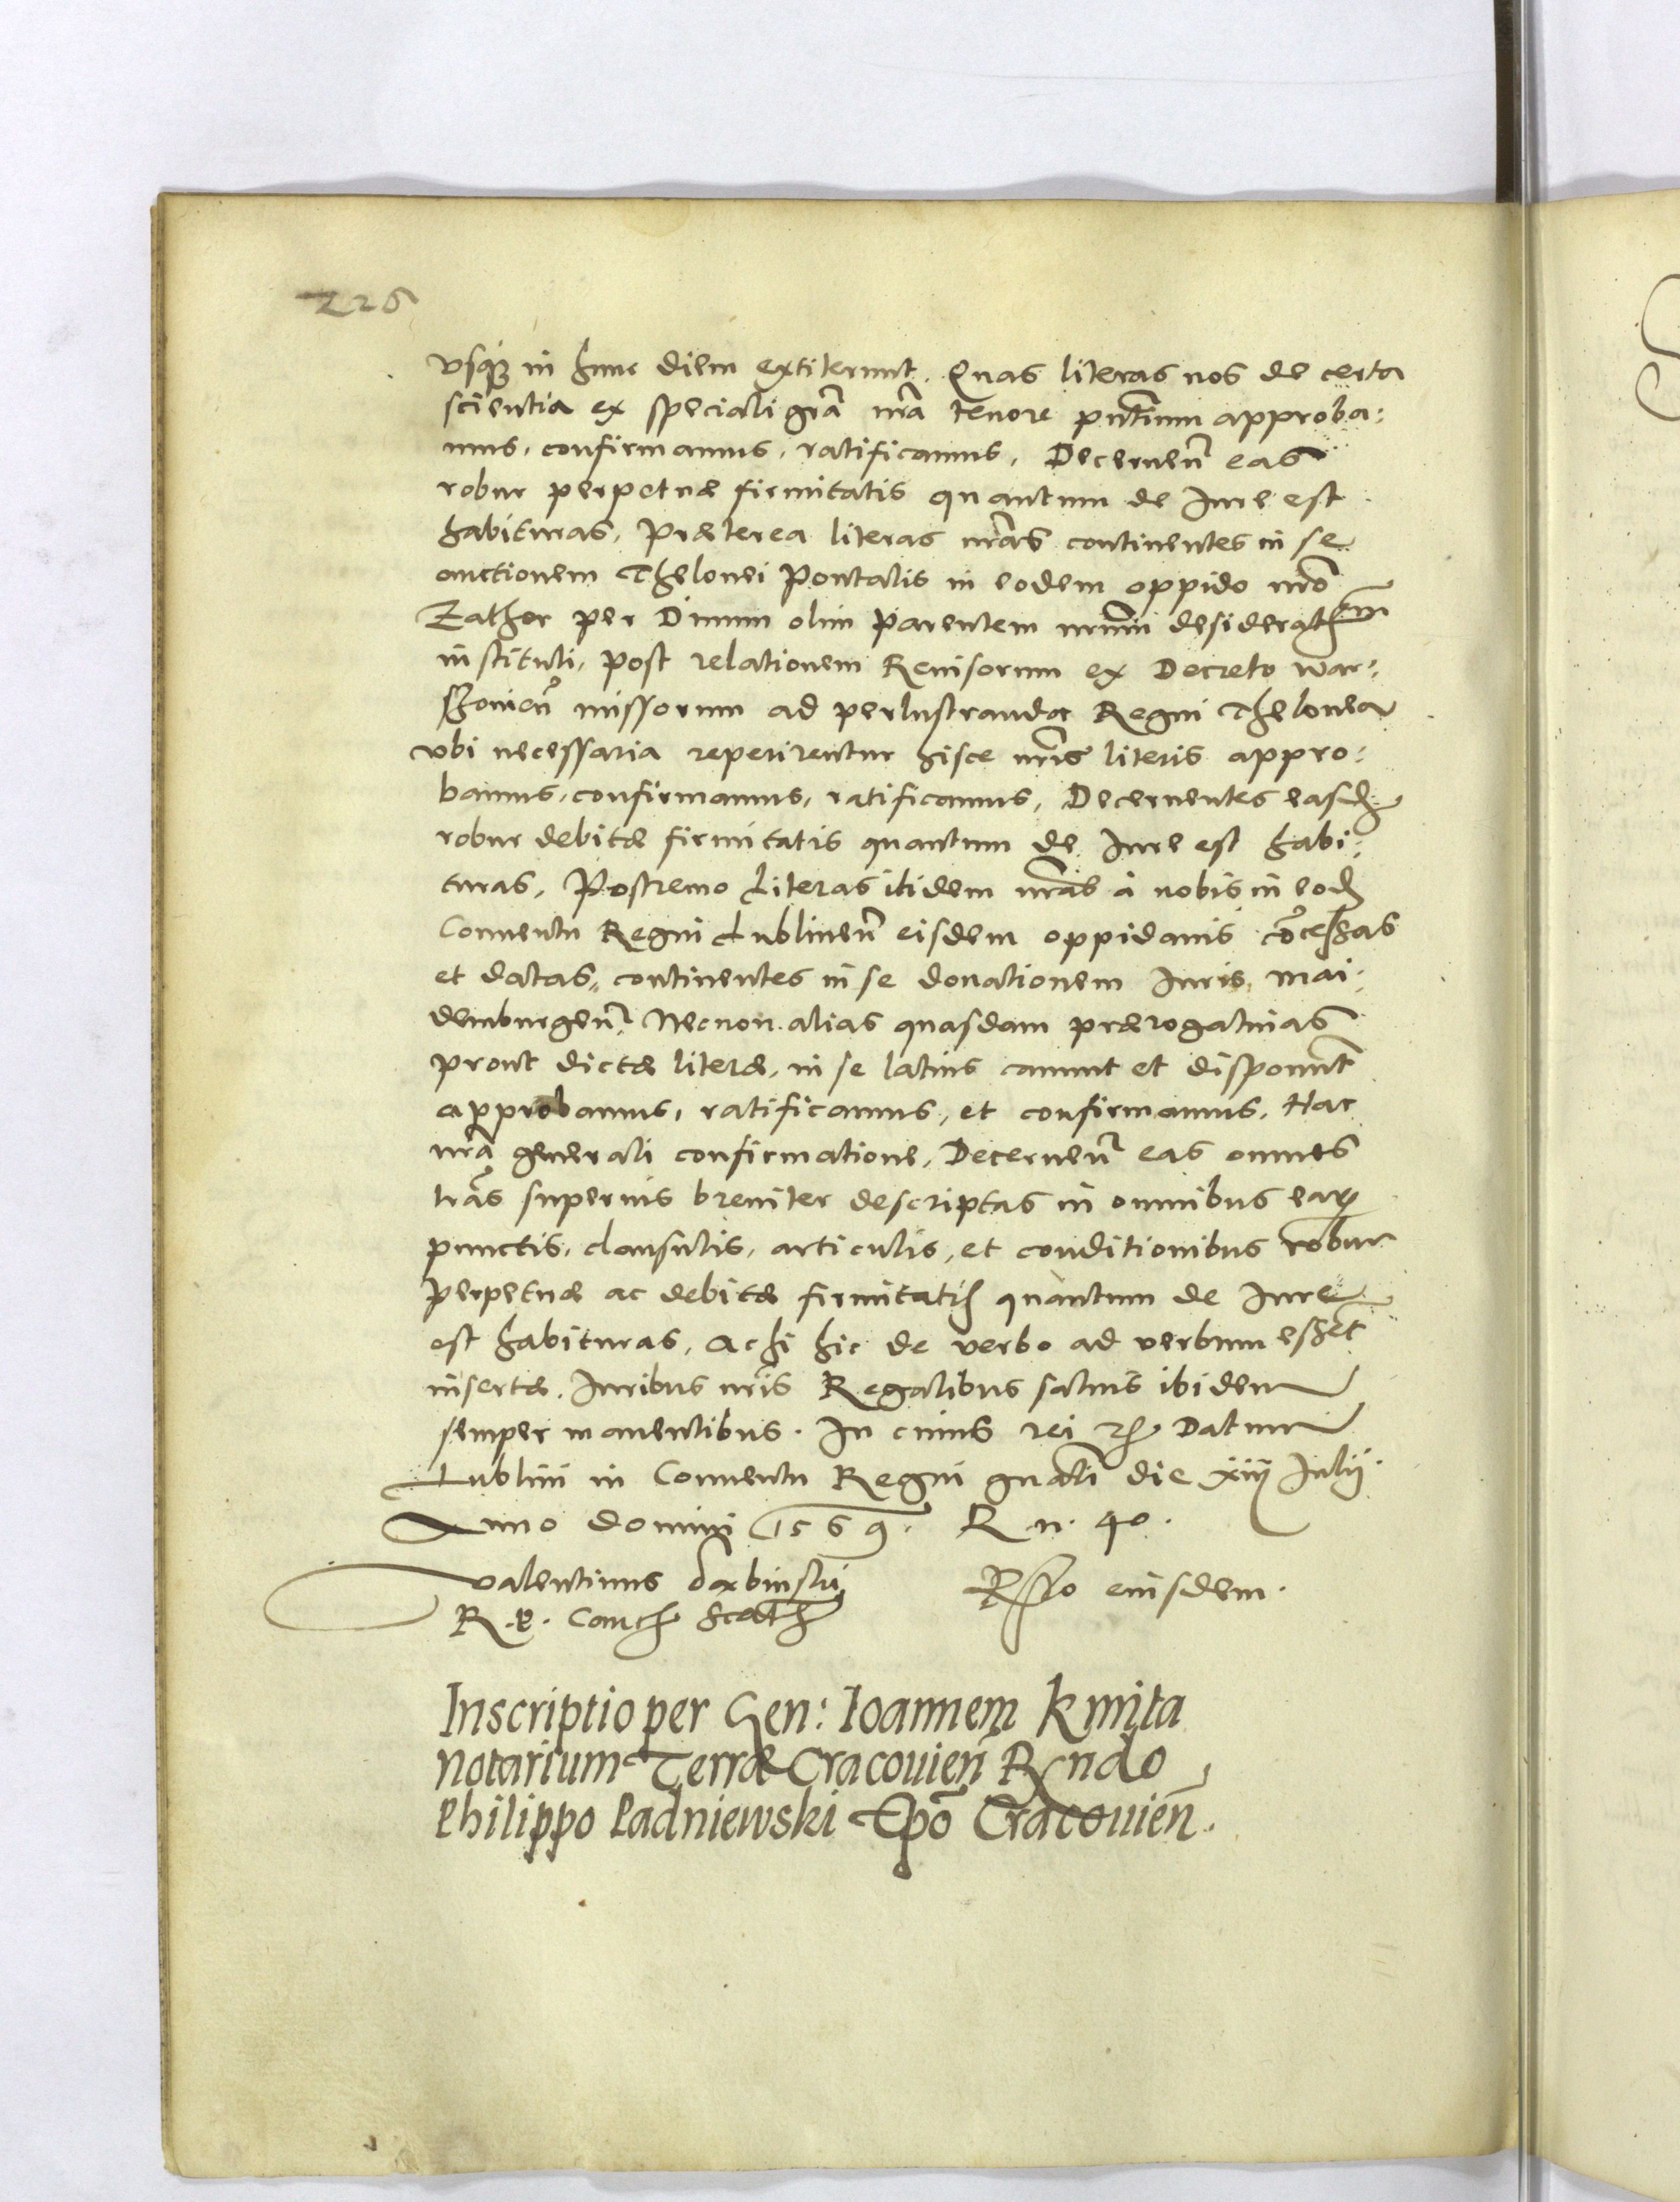 226
vsq3 in hunc diem extiterunt. Quas literas nos de certa
scientia ex speciali gra͂ nr̃a tenore pn̄tium approba:
mus, confirmamus, ratificamus, Decernen̄ eas
robur perpetuæ firmitatis quantum de Iure est
habituras, Præterea literas nr̃as continentes in se
auctionem Thelonei Pontalis in eodem oppido nr̃o
Zathor per Diuum olim Parentem nr̃um desideratis͂m
instituti, post relationem Reuisorum ex Decreto War:
schouien̄ missorum ad perlustranda Regni Thelonea
vbi necessaria reperirentur hisce nr̃is literis appro:
bamus, confirmamus, ratificamus, Decernentes easd.
robur debitæ firmitatis quantum de Iure est habi:
turas, Postremo Literas itidem nr̃as à nobis in eod.
Conuentu Regni Lublinen̄ eisdem oppidanis co͂cessas
et datas, continentes in se donationem Iuris, mai:
demburgen̄. Necnon alias quasdam prærogatiuas
prout dictæ literæ, in se latius canunt et disponunt
approbamus, ratificamus, et confirmamus, Hac
nr̃a generali confirmatione, Decernen̄ eas omnes
lr̃as superius breuiter descriptas in omnibus earꝝ
punctis, clausulis, articulis, et conditionibus robur
perpetuæ ac debitæ firmitatis quantum de Iure
est habituras, ac si hic de verbo ad verbum essent
insertæ. Iuribus nr̃is Regalibus saluis ibidem
semper manentibus. In cuius rei &c. Datum
Lublini in Conuentu Regni gn̄ali die xiij Iulij.
Anno domini 1569. R n. 40.
Valentinus Dambinski
R. P. Canc. Rsso eiusdem.
Inscriptio per Gen: Ioannem Kmita
Notarium Terræ Cracouien̄ Rndo
Philippo Padniewski Ep̄o Cracouien̄.